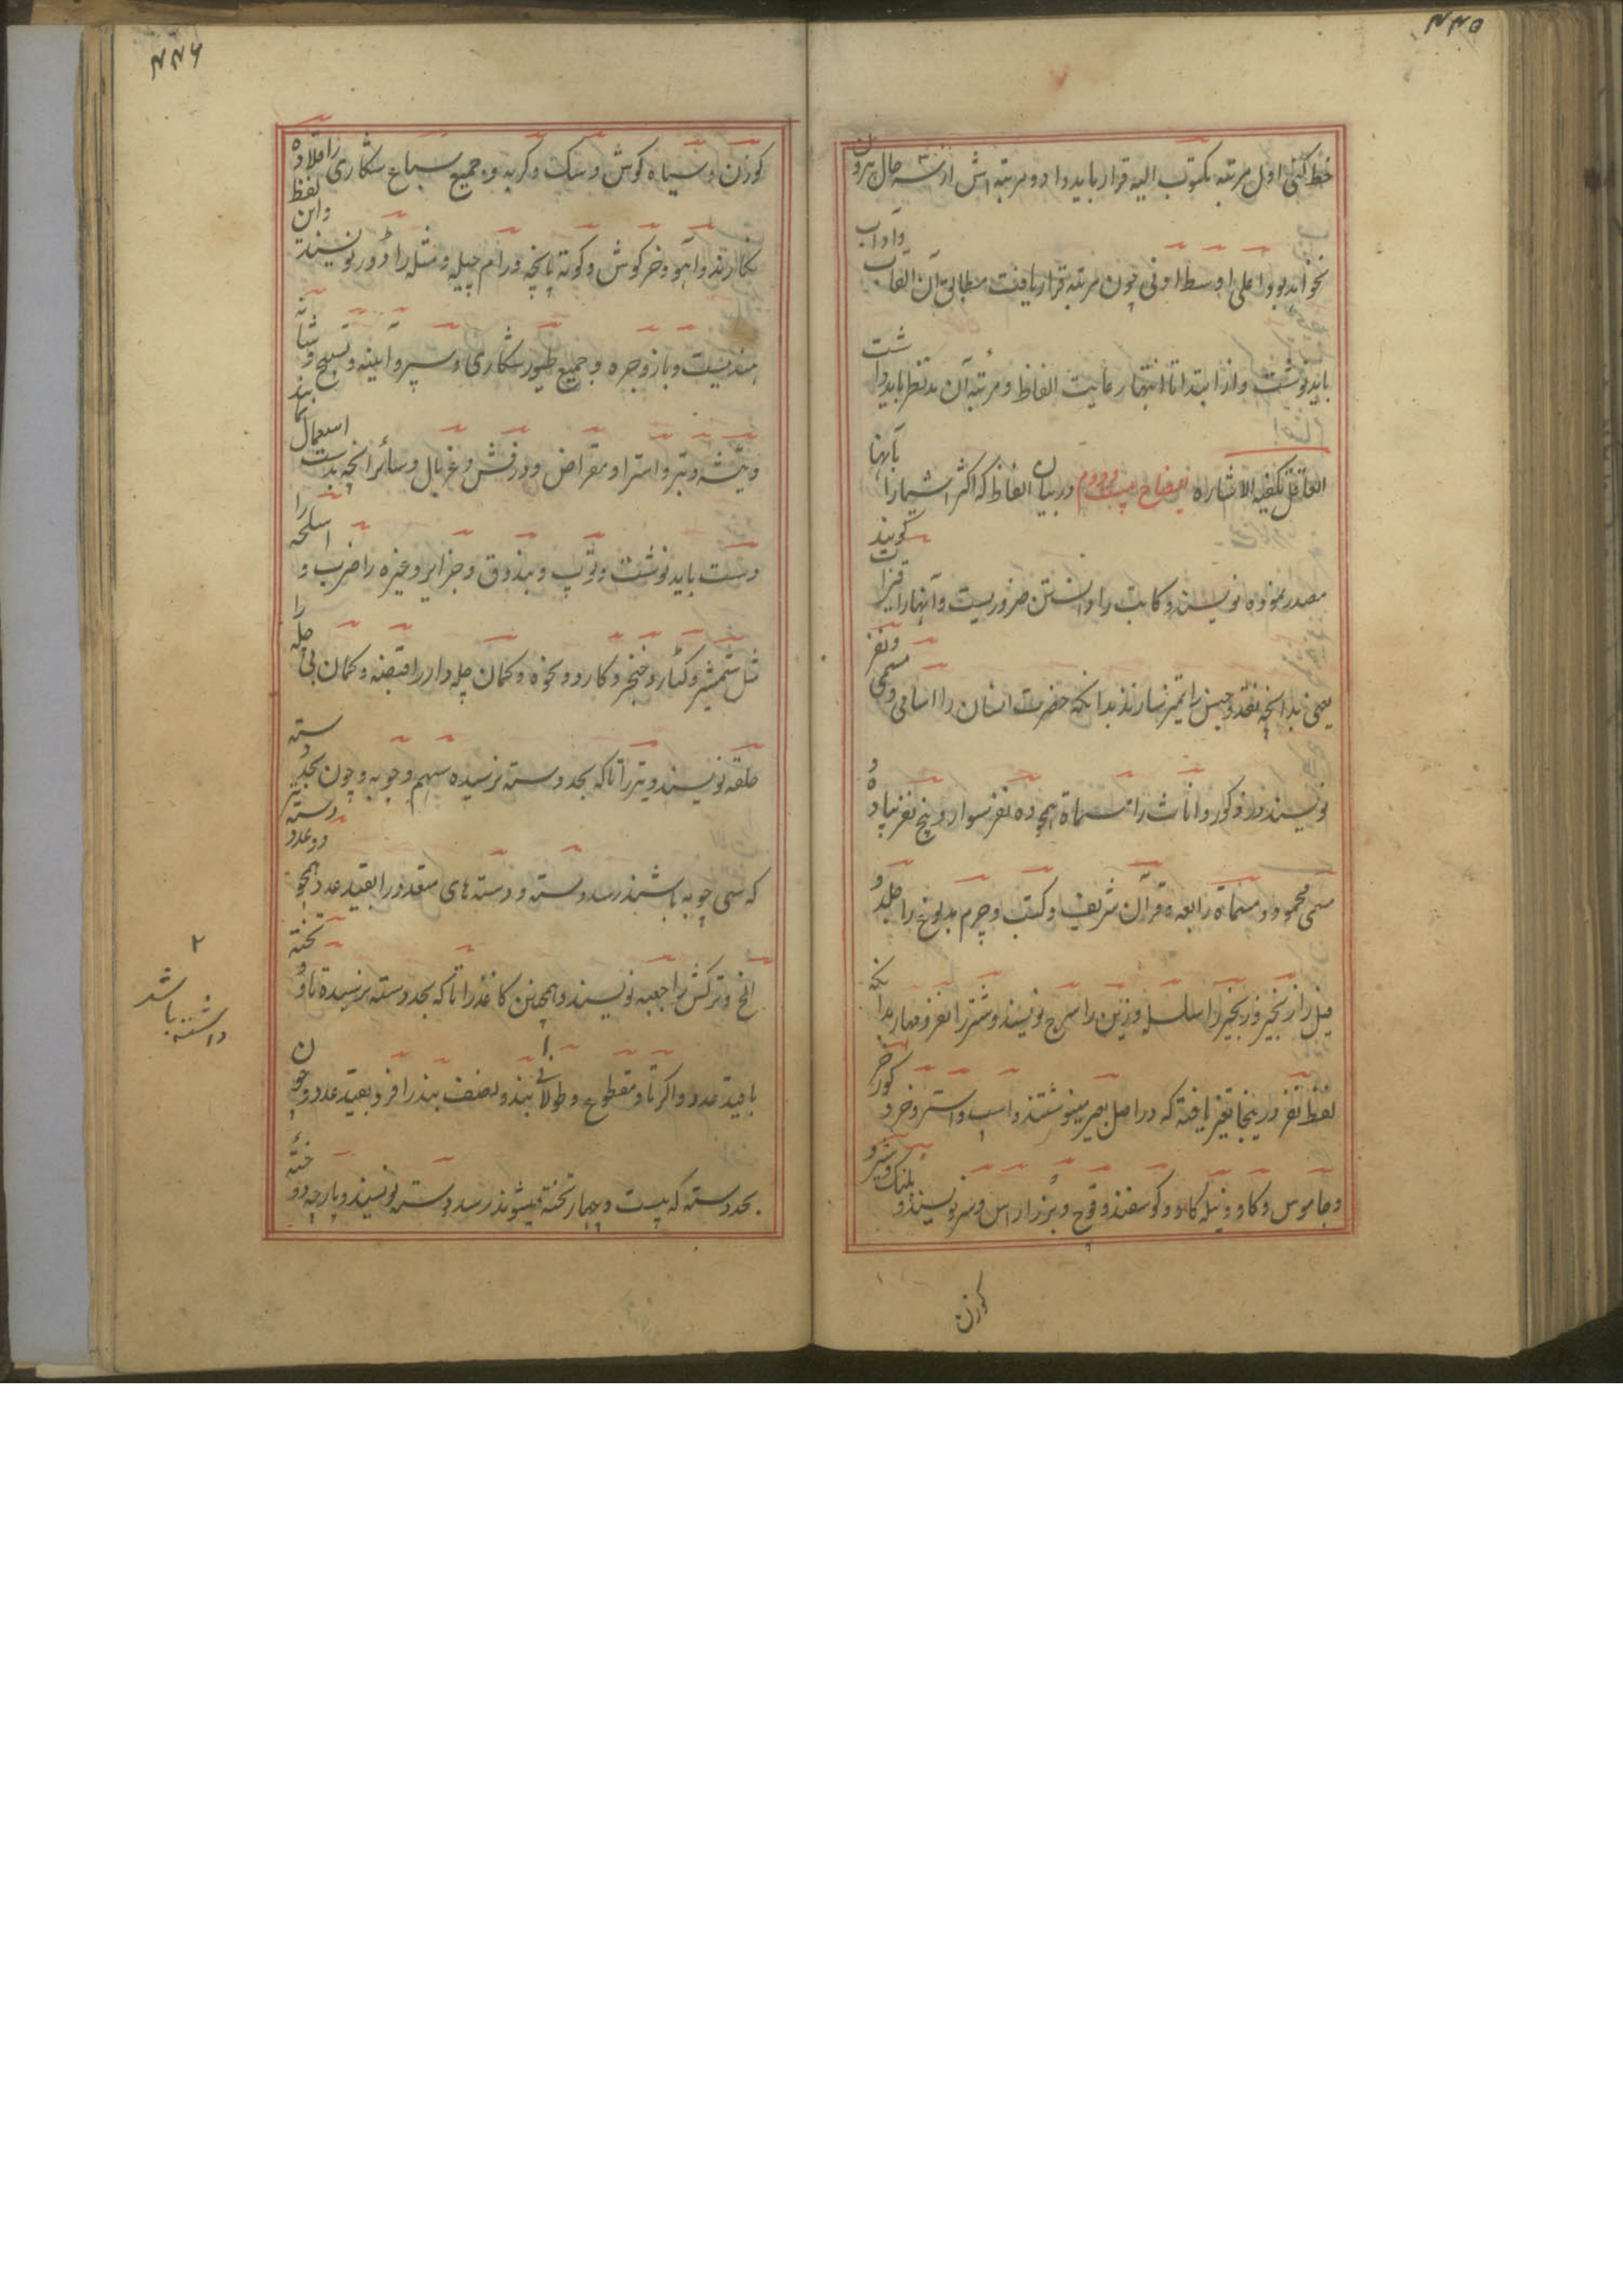 ۴۴۵
خط کنی اول مرتبه مکتوب الیه قرار باید داد و مرتبه اش از سه حال بیرون
نخواهد بود اعلی اوسط ادنی چون مرتبه قرار یافت مطابق آن القاب وآداب
باید نوشت و از ابتدا تا انتها رعایت الفاظ و مرتبه آن مدنظر باید داشت
العاقل تکفیه الاشاره ایضاح بیست ودوم در بیان الفاظ که اکثر اشیا را بآنها
مصدر نموده نویسند و کاتب را دانستن ضروریست و آنها را گویند
یعنی بدانچه نقد و جنس را تمیز سازند بدانکه حضرت انسان را اسامی و مسمی ونفر
نویسند در ذکور و اناث را مسماة همچو ده نفر سوار و پنج نفر پیاده و
مسمی محمود و مسماة رابعه و قرآن شریف و کتب و چرم مدبوغ را جلد و
فیل را زنجیر و زنجیر را سلسله و زین را سرج نویسند و شتر را نفر و مهار بدانکه
لفظ نفر در ینجا تغیر یافته که در اصل بعیر مینوشتند و اسب و استر و خر و کورخر
و جاموس و کاو و نیله کاو و کوسفند و قوچ و بز را راس و سر نویسند و پلنک و شیر و
کوزن
۴۴۶
کوزن و سیاه کوش و سک و کربه و جمیع سباع شکاری را قلاده
نکارند و آهو و خرکوش و کوته پاچه و رام چیله و مثله را دور نویسند واین لفظ
هندیست و باز و جره و جمیع طیور شکاری و سپر و آیینه و تسبیح و شانه
و تیشه و تبر و استرا و مقراض و درفش و غربال و سائر آنچه بدست استعمال نمایند
دست باید نوشت و توپ و بندوق و جزایر و غیره را ضرب و اسلحه را
مثل شمشیر و کتار و خنجر و کارد و نحوه و کمان چله دار را قبضه و کمان بی چله را
حلقه نویسند و تیر را تا که بحد دسته نرسیده سهم و چوبه و چون بحد دسته
که سی چوبه باشند رسد دسته و دسته های متعدد را بقید عدد همچو دو عدد دسته تیر
الخ و ترکش را جعبه نویسند و همچنین کاغذ را تا که بحد دسته نرسیده تا و تخته
با قید عدد و اکر تاو مقطوع و طولانی بند و نصف بند را فرد بقید عدد و چون
بحد دسته که بیست و چهار تخته میشوند رسد دسته نویسند و پارچه دوخته
۲
داشته باشد